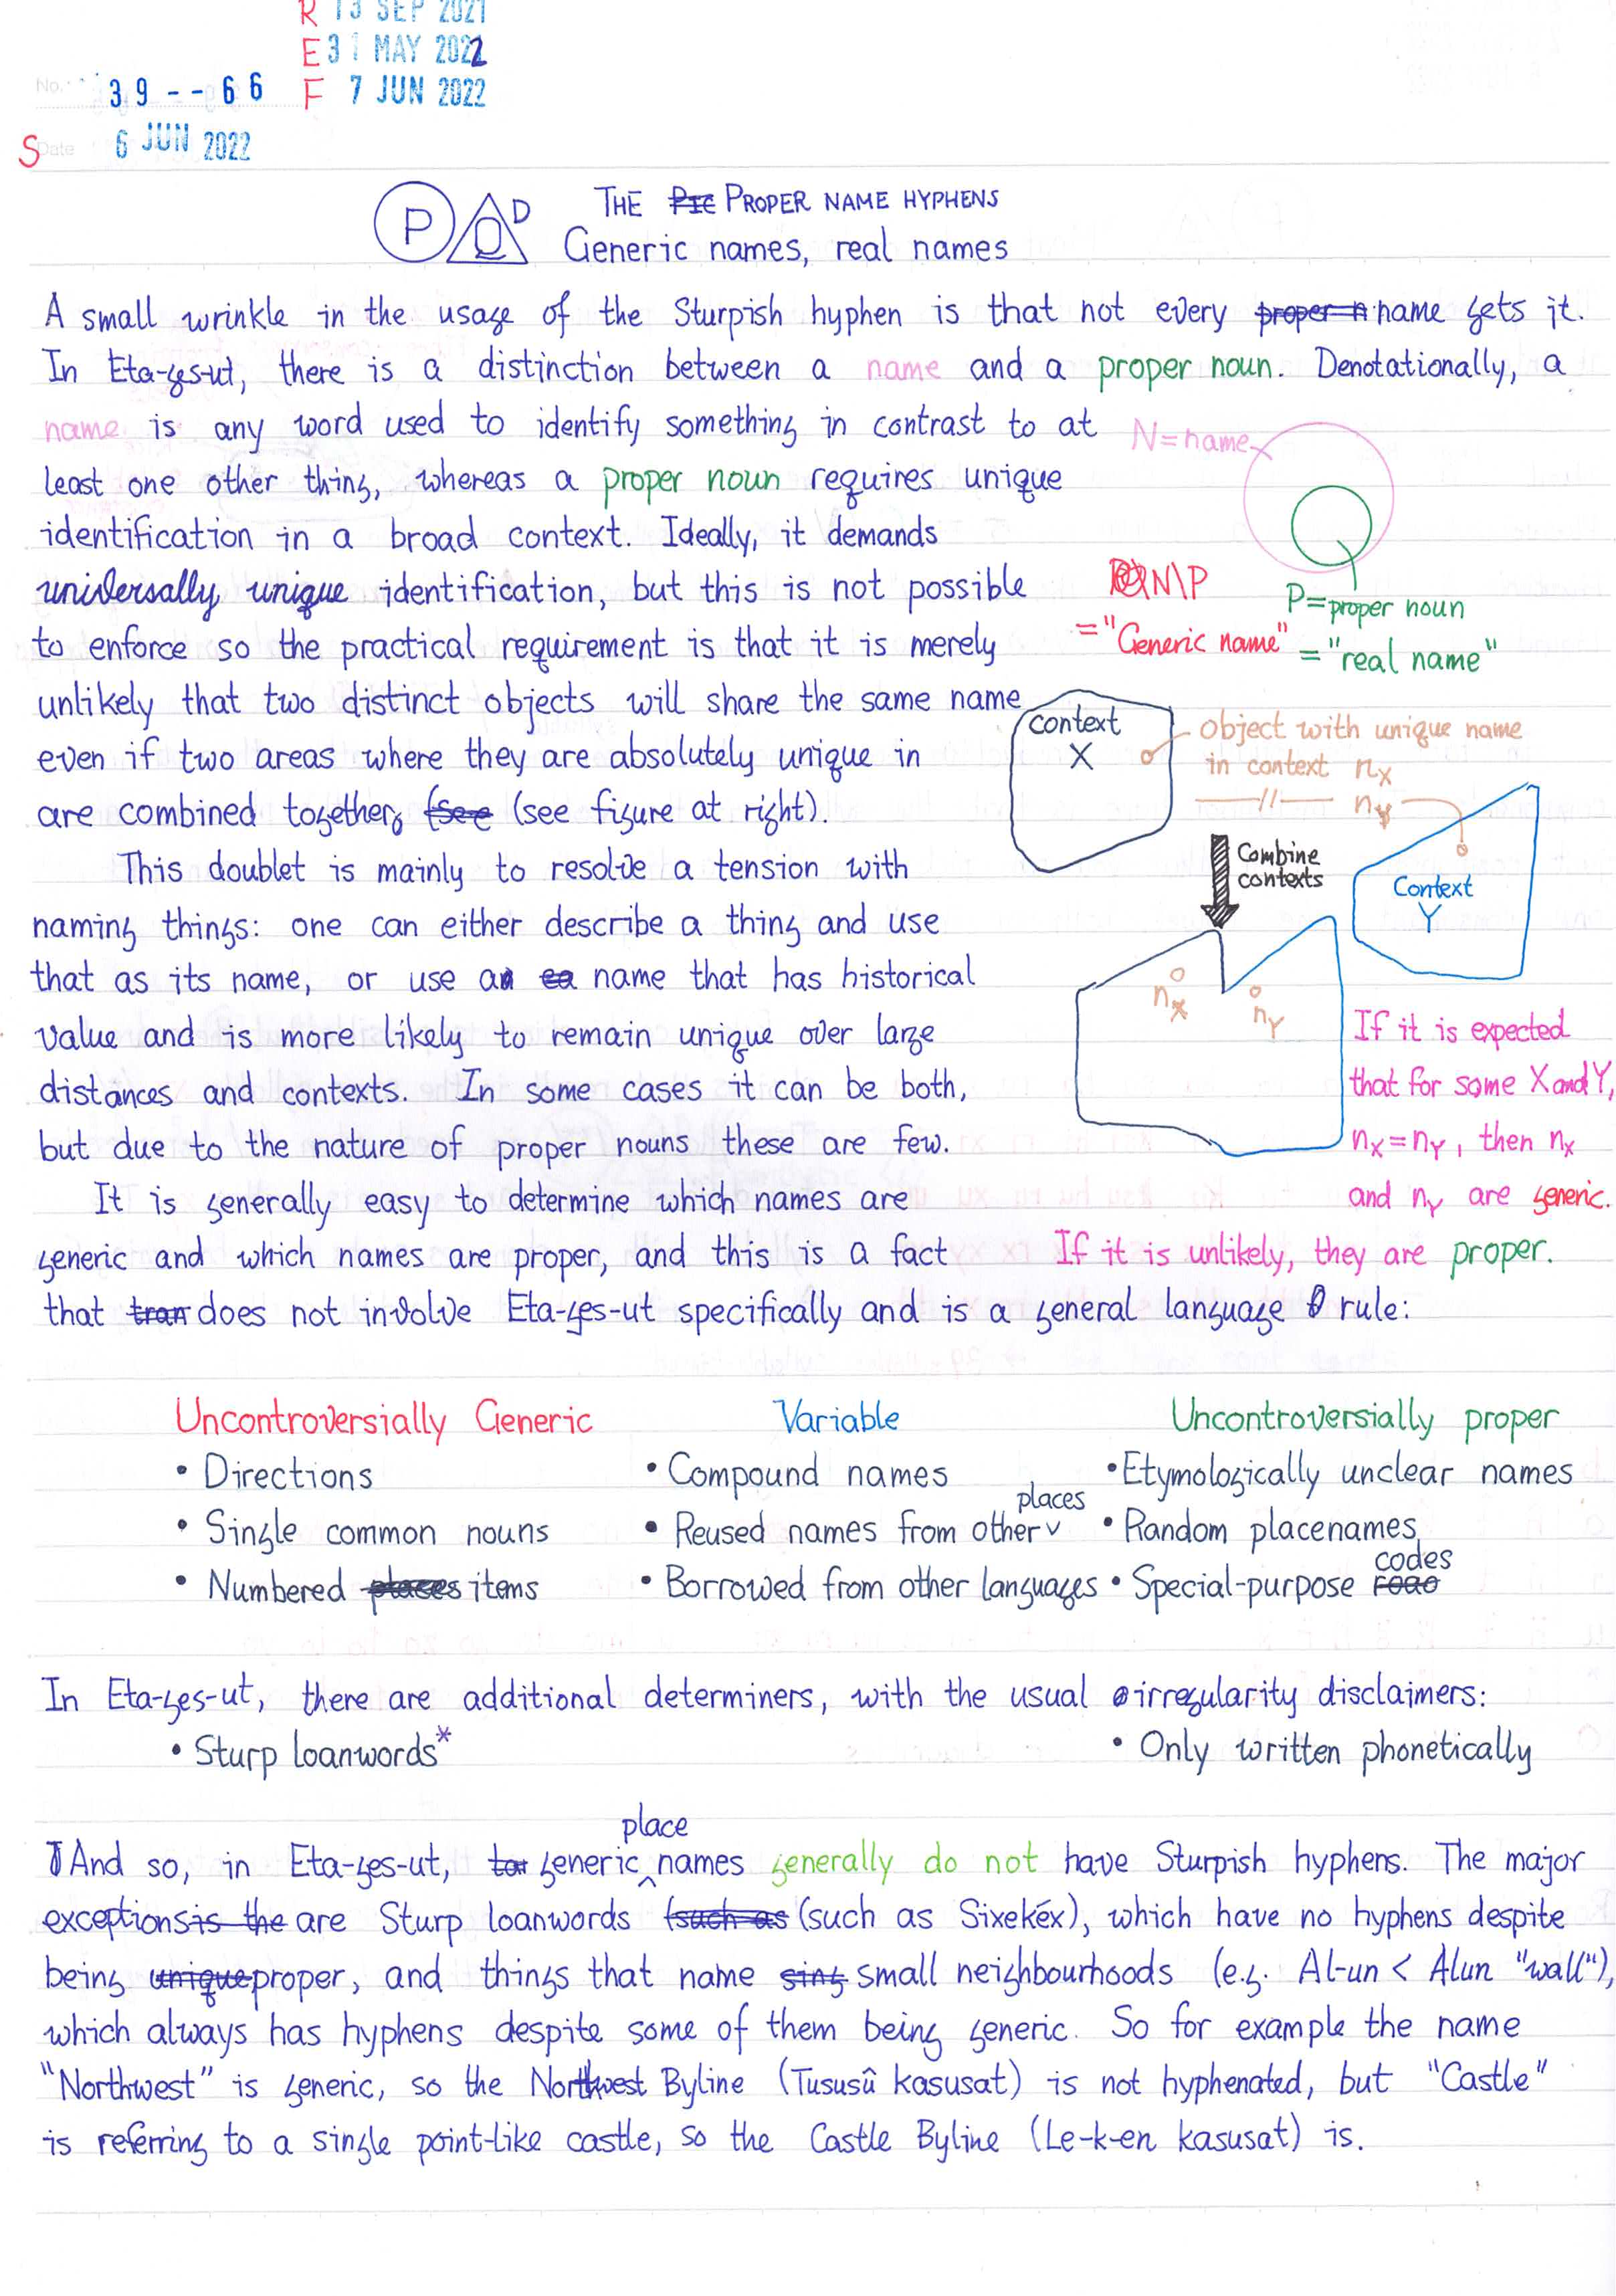 R 13 SEP 2021
E 31 MAY 2022
No. 39--66 F 7 JUN 2022
S Date 6 JUN 2022
P D THE PROPER NAME HYPHENS
Generic names, real names
A small wrinkle in the usage of the Sturpish hyphen is that not every proper n name gets it.
In Eta-ges-ut, there is a distinction between a name and a proper noun. Denotationally, a
name is any word used to identify something in contrast to at
least one other thing, whereas a proper noun requires unique
identification in a broad context. Ideally, it demands
universally unique identification, but this is not possible
to enforce so the practical requirement is that it is merely
unlikely that two distinct objects will share the same name
even if two areas where they are absolutely unique in
are combined together, (see (see figure at right).
N=name
N\P
="Generic name"
P=proper noun
="real name"
Context
X
object with unique name
in context nX
—//— nY
Combine
contexts
Context
Y
nX
nY
If it is expected
that for some X and Y,
nX=nY, then nX
and nY are generic.
If it is unlikely, they are proper.
This doublet is mainly to resolve a tension with
naming things: one can either describe a thing and use
that as its name, or use a name that has historical
value and is more likely to remain unique over large
distances and contexts. In some cases it can be both,
but due to the nature of proper nouns these are few.
It is generally easy to determine which names are
generic and which names are proper, and this is a fact
that tran does not involve Eta-ges-ut specifically and is a general language rule:
Uncontroversially Generic
• Directions
• Single common nouns
• Numbered places items
Variable
• Compound names
• Reused names from other places
• Borrowed from other languages
Uncontroversially proper
• Etymologically unclear names
• Random placenames
• Special-purpose codes
In Eta-ges-ut, there are additional determiners, with the usual irregularity disclaimers:
• Sturp loanwords*
• Only written phonetically
And so, in Eta-ges-ut, generic place names generally do not have Sturpish hyphens. The major
exceptions is the are Sturp loanwords (such as (such as Sixekéx), which have no hyphens despite
being unique proper, and things that name sing small neighbourhoods (e.g. Al-un < Alun "wall"),
which always has hyphens despite some of them being generic. So for example the name
"Northwest" is generic, so the Northwest Byline (Tususû kasusat) is not hyphenated, but "Castle"
is referring to a single point-like castle, so the Castle Byline (Le-k-en kasusat) is.